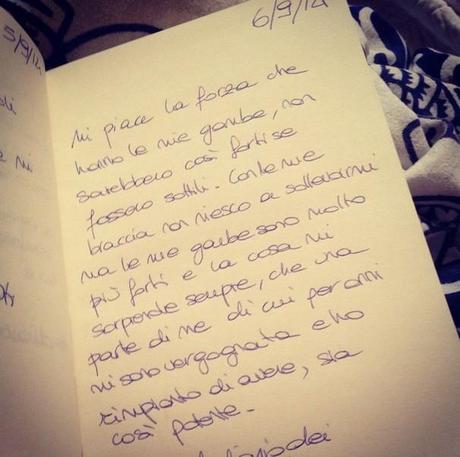 5/9/14
6/9/14
Mi piace la forza che
hanno le mie gambe, non
sarebbero così forti se
fossero sottili. Con le mie
braccia non riesco a sollevarmi
ma le mie gambe sono molto
più forti e la cosa mi
sorprende sempre, che una
parte di me di cui per anni
mi sono vergognata e ho
rimpianto di avere, sia
così potente.